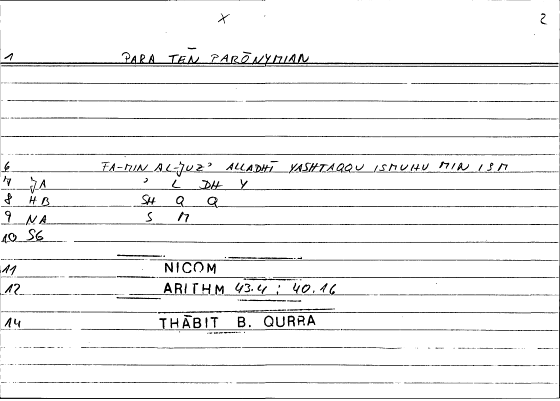 X 2
1 PARA TĒN PARŌNYMIAN
6 FA-MIN AL-ǦUZʾ ALLADHĪ YASHTAQQU ISMUHU MIN ISM
7 ǦA ʾ L DH Y
8 HB SH Q Q
9 NA S M
10 SG
11 NICOM
12 ARITHM 43.4 ; 40.16
14 THĀBIT B. QURRA